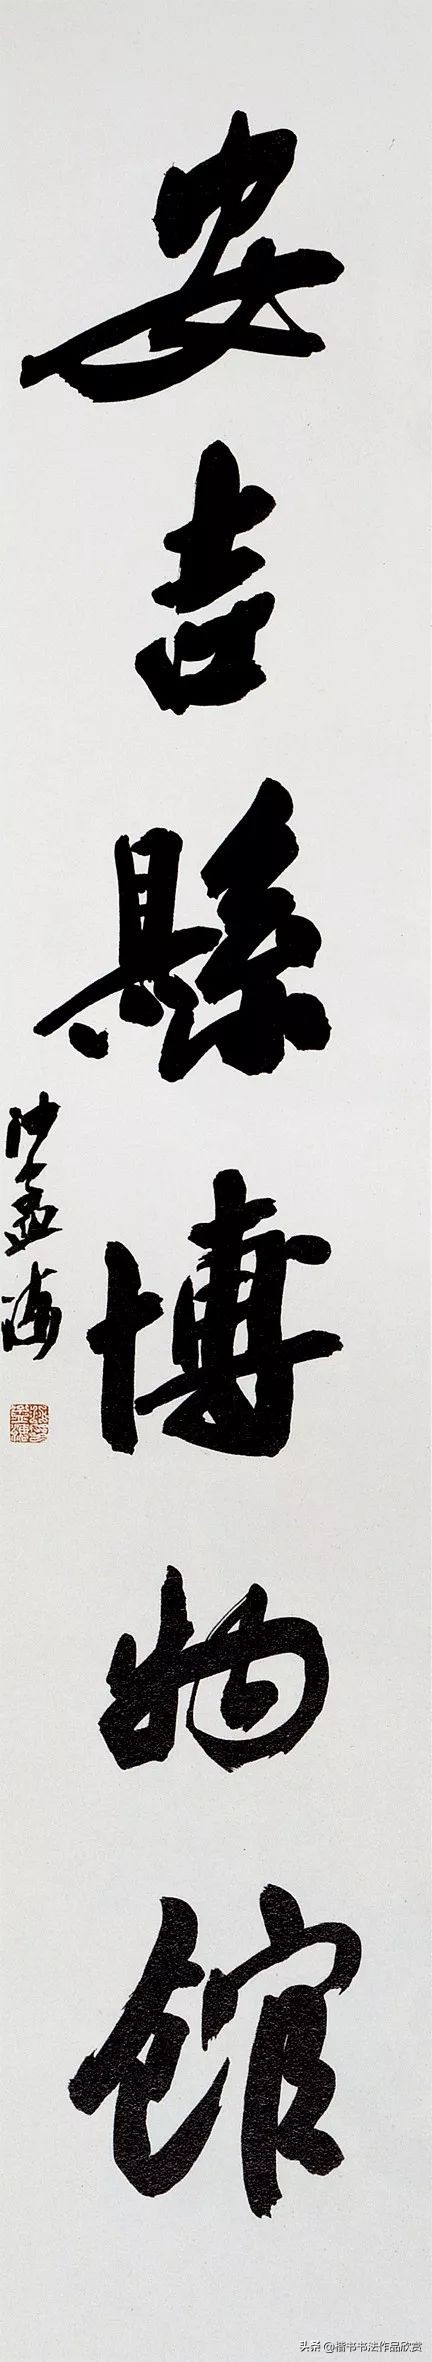 安吉縣博物館
沙孟海
头条 @楷书书法作品欣赏